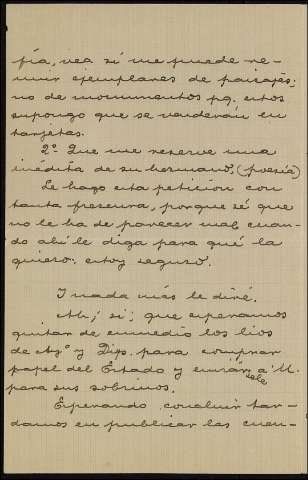 fía, vea si me puede re-
unir ejemplares de paisajes;
no de monumentos pq. estos
supongo que se venderán en
tarjetas.
2º Que me reserve una
inédita de su hermano, (poesía)
Le hago esta petición con
tanta frescura, porque sé que
no le ha de parecer mal cuan-
do ahí le diga para qué la
quiero: estoy seguro.
Y nada más le diré.
Ah, si; que esperamos
quitar de enmedio los líos
de Ayº y Dip. para comprar
papel del Estado y a M.
para sus sobrinos.
Esperando concluir tar-
damos en publicar las cuen-